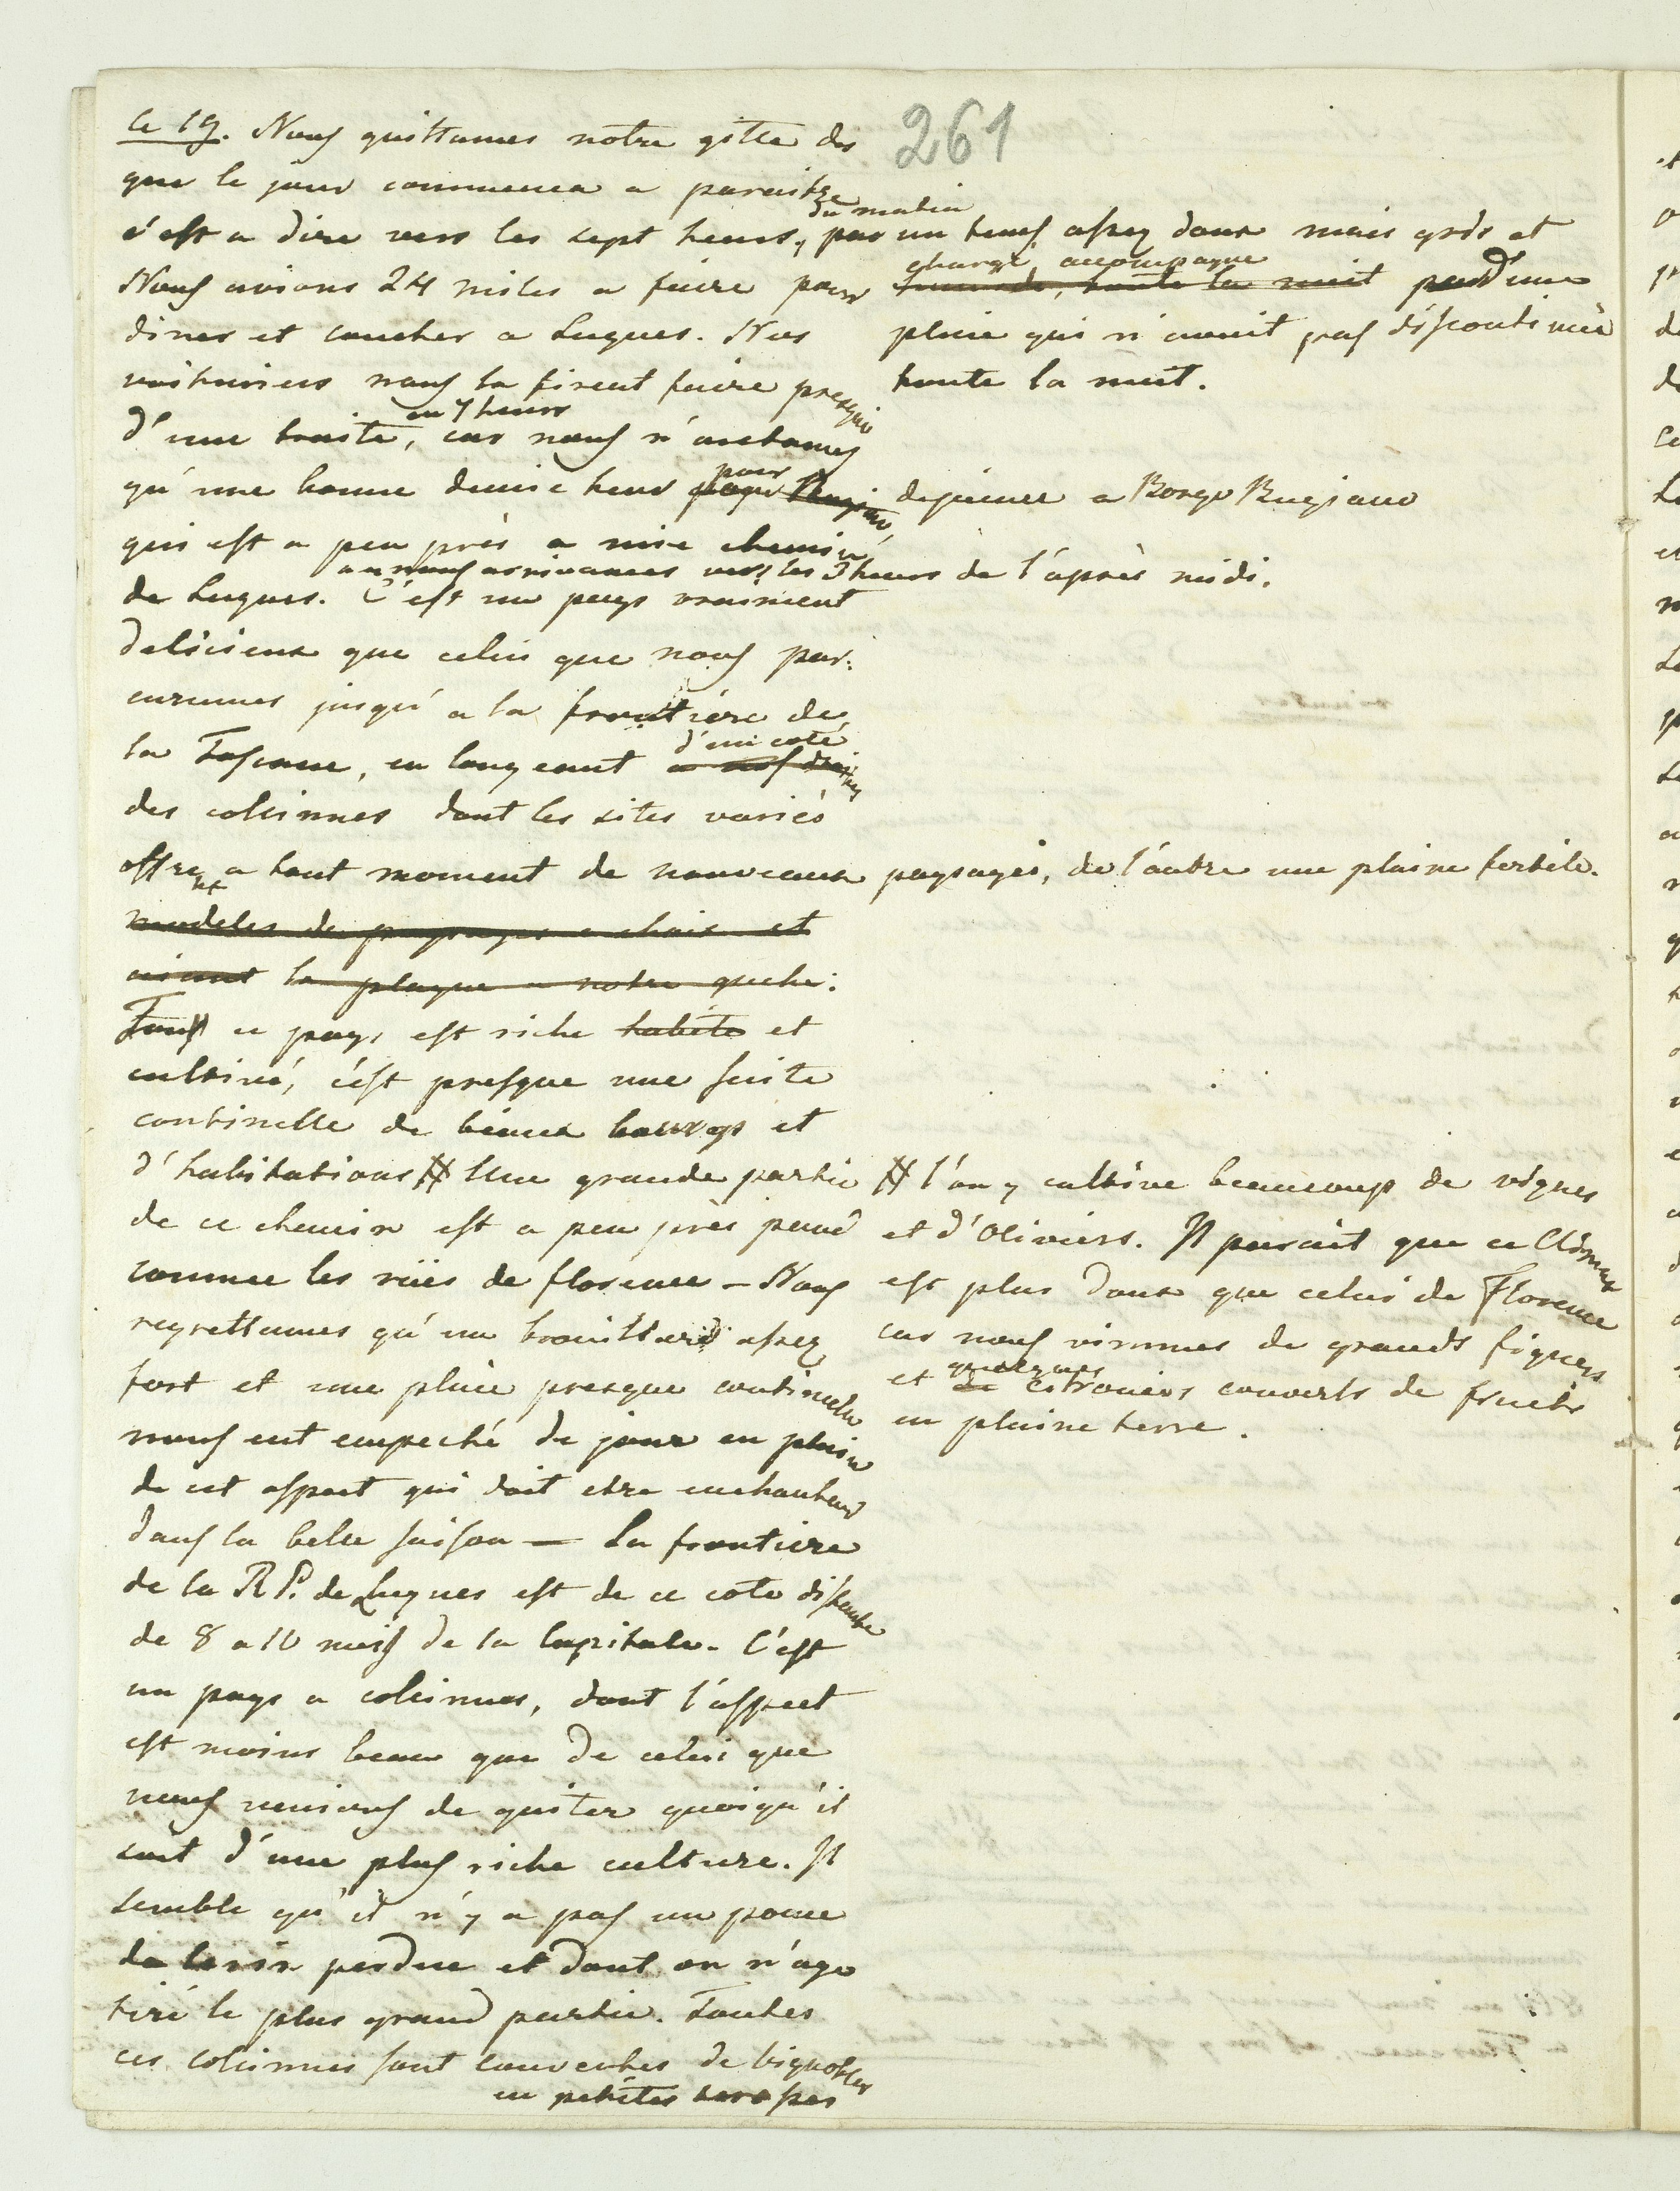 261
Ce 19. Nous quittames notre gitte des
que le jour commenca a paroitre
c'est a dire vers les sept heures du matin, par un tems assez doux mais gris et
Nous avions 24 miles a faire pour chargé, accompagne d'une
diner et coucher a Luques. Nos pluie qui n'avoit pas discontinué
voituriers nous la firent faire presque toute la nuit.
d'une traite, en 7 heures car nous n'arretames
qu'une bonne demie heur pour dejeuner a Borgo Bugiano
qui est a peu près a mie chemin
ou nous arrivames vers les 3 heures de l'après midi.
de Luques. C'est un pays vraiment
delicieux que celui que nous par:
curumes jusqu'a la frontière de
la Toscane, en longeant d'un coté
des colinnes dont les sites variés
offrent a tout moment de nouveaux paysages, de l'autre une plaine fertile.
modeles de paysages a choix et
aiant la plagne a notre guche.
Tous ce pays est riche habité et
cultivé, c'est presque une suite
continelle de beaux bourgs et
d'habitations # Une grande partie
de ce chemin est a peu près pavé
comme les rües de florence - Nous
regrettames qu'un brouillard assez
fort et une pluie presque continuelle
nous eut empeché de jouir en plein
de cet aspect qui doit etre enchanteur
dans la belle saison - La frontiere
de la RP. de Luques est de ce cote distante
de 8 a 10 mils de la Capitale. C'est
un pays a colinnes, dont l'aspect
est moins beau que de celui que
nous venions de quiter quoiqu'il
soit d'une plus riche culture. Il
semble qu'il n'y a pas un pouce
de terin perdue et dont on n'aye
tiré le plus grand partie. Toutes
ces colinnes sont couvertes de vignobles
en petites terasses
# l'on y cultive beaucoup de vignes
et d'Oliviers. Il parait que ce Climat
est plus doux que celui de Florence
car nous vimmes de grands figuers
et quelques citroniers couverts de fruits
en pleine terre.